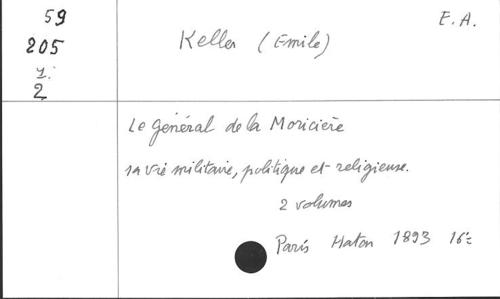 59
205
1:
2
E. A.
Keller (Emile)
Le Général de la Moricière
sa vie militaire, politique et religieuse.
2 volumes
Paris Haton 1893 16º